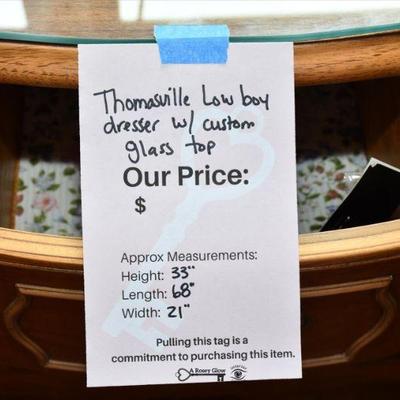 Thomasville Low boy
dresser w/ custom
glass top
Our Price:
$
Approx Measurements:
Height: 33"
Length: 68"
Width: 21"
Pulling this tag is a
commitment to purchasing this item.
A Rosey Glow